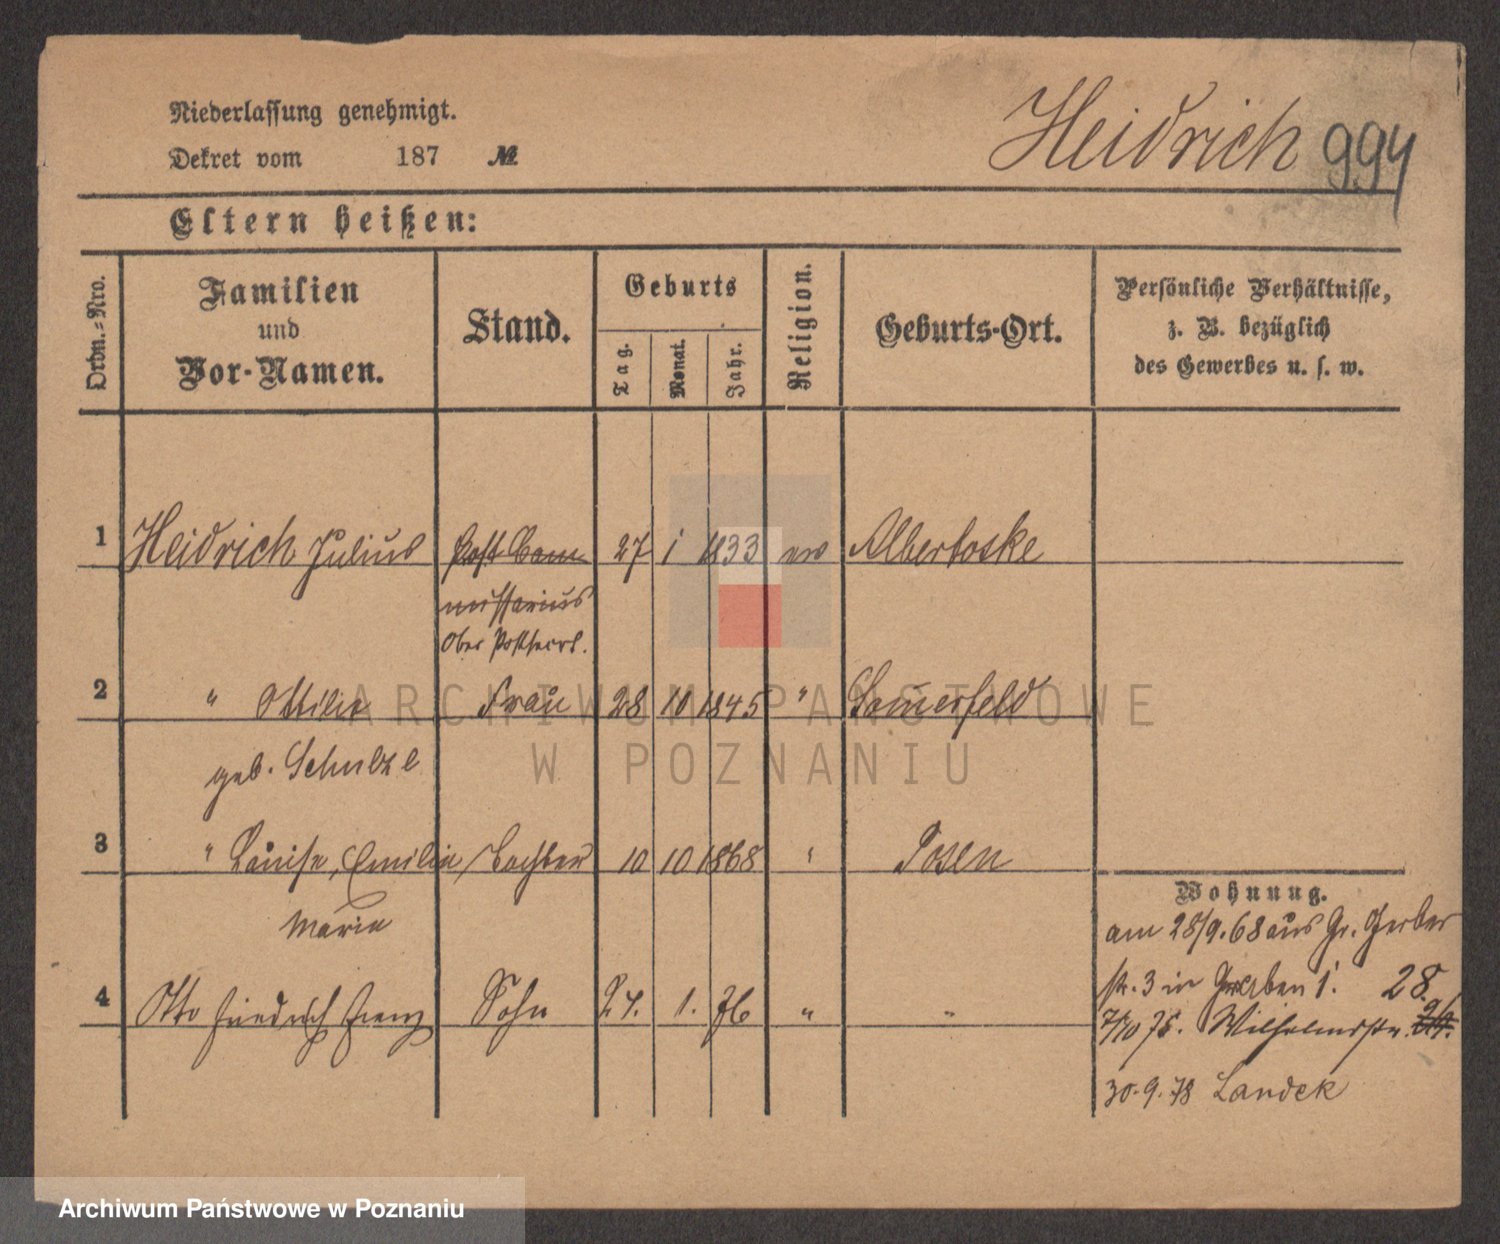 Niederlassung genehmigt.
Dekret vom 187 №
Heidrich 994
Eltern heißen:
Ordn.-Nro.
Familien
und
Vor-Namen.
Stand.
Geburts
Tag.
Monat.
Jahr.
Religion.
Geburts-Ort.
Persönliche Verhältnisse,
z. B. bezüglich
des Gewerbes u. s. w.
1 Heidrich Julius Post Com 27 1 1833 ev Albertoske
missarius
Ober Postsecret.
2 " Ottilie Frau 28 10 1845 " Sommerfeld
geb. Schulze
3 " Louise, Emilie Tochter 10 10 1868 " Posen
Maria
4 Otto Friedrich Franz Sohn 24. 1. 76 " "
Wohnung.
am 28/9. 68 aus Gr. Gerber
str. 3 in Graben 1. 28.
7/10 75. Wilhelmstr.
30.9.78 Landek
ARCHIWUM PAŃSTWOWE
W POZNANIU
Archiwum Państwowe w Poznaniu